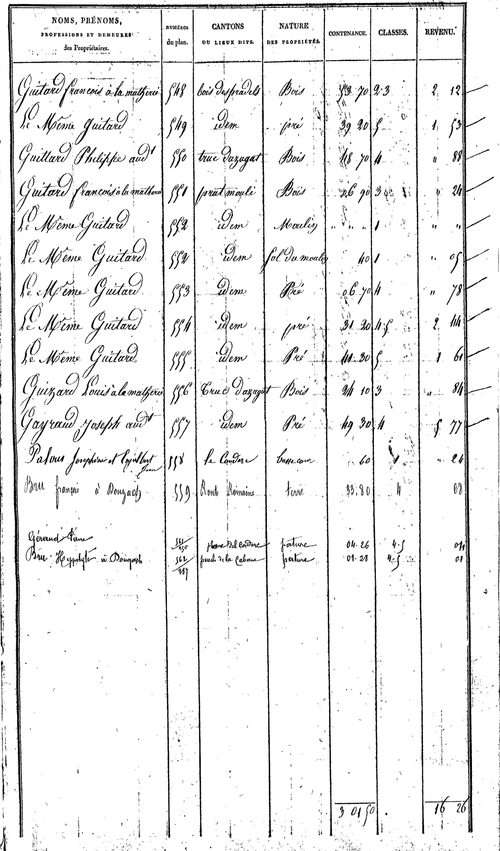 NOMS, PRÉNOMS, PROFESSIONS ET DEMEURES des Propriétaires. NUMÉROS du plan. CANTONS OU LIEUX DITS. NATURE DES PROPRIÉTÉS. CONTENANCE. CLASSES. REVENU.
Guitard francois à la matherie 548 bois des pradels Bois 53 70 2.3 2 12
Le Même Guitard 549 idem pré 39 20 5 1 53
Guittard Philippe audt 550 truc dazagat Bois 48 70 4 " 88
Guitard francois à la matherie 551 prat moyli Bois 06 90 3 " 24
Le Même Guitard 552 idem Moulin " " 1 " "
Le Même Guitard 552 idem sol du moulin 40 1 " 05
Le Même Guitard 553 idem Pré 06 70 4 " 78
Le Même Guitard 554 idem pré 31 20 4.5 2 44
Le Même Guitard 555 idem Pré 41 30 5 1 61
Guizard Louis à la matherie 556 truc dazagat Bois 24 10 3 " 84
Gayraud Joseph audt 557 idem Pré 49 30 4 5 77
Palous Josephine et 558 le Couderc basse cour 60 1 " 24
Bru françois à Bouzach 559 Route Romaine terre 33.80 4 08
Géraud 04.26 4.5
pature
Bru Hippolyte à Bouzach de la Cabane pature 01.21 4.5 01
3 01 50 16 26